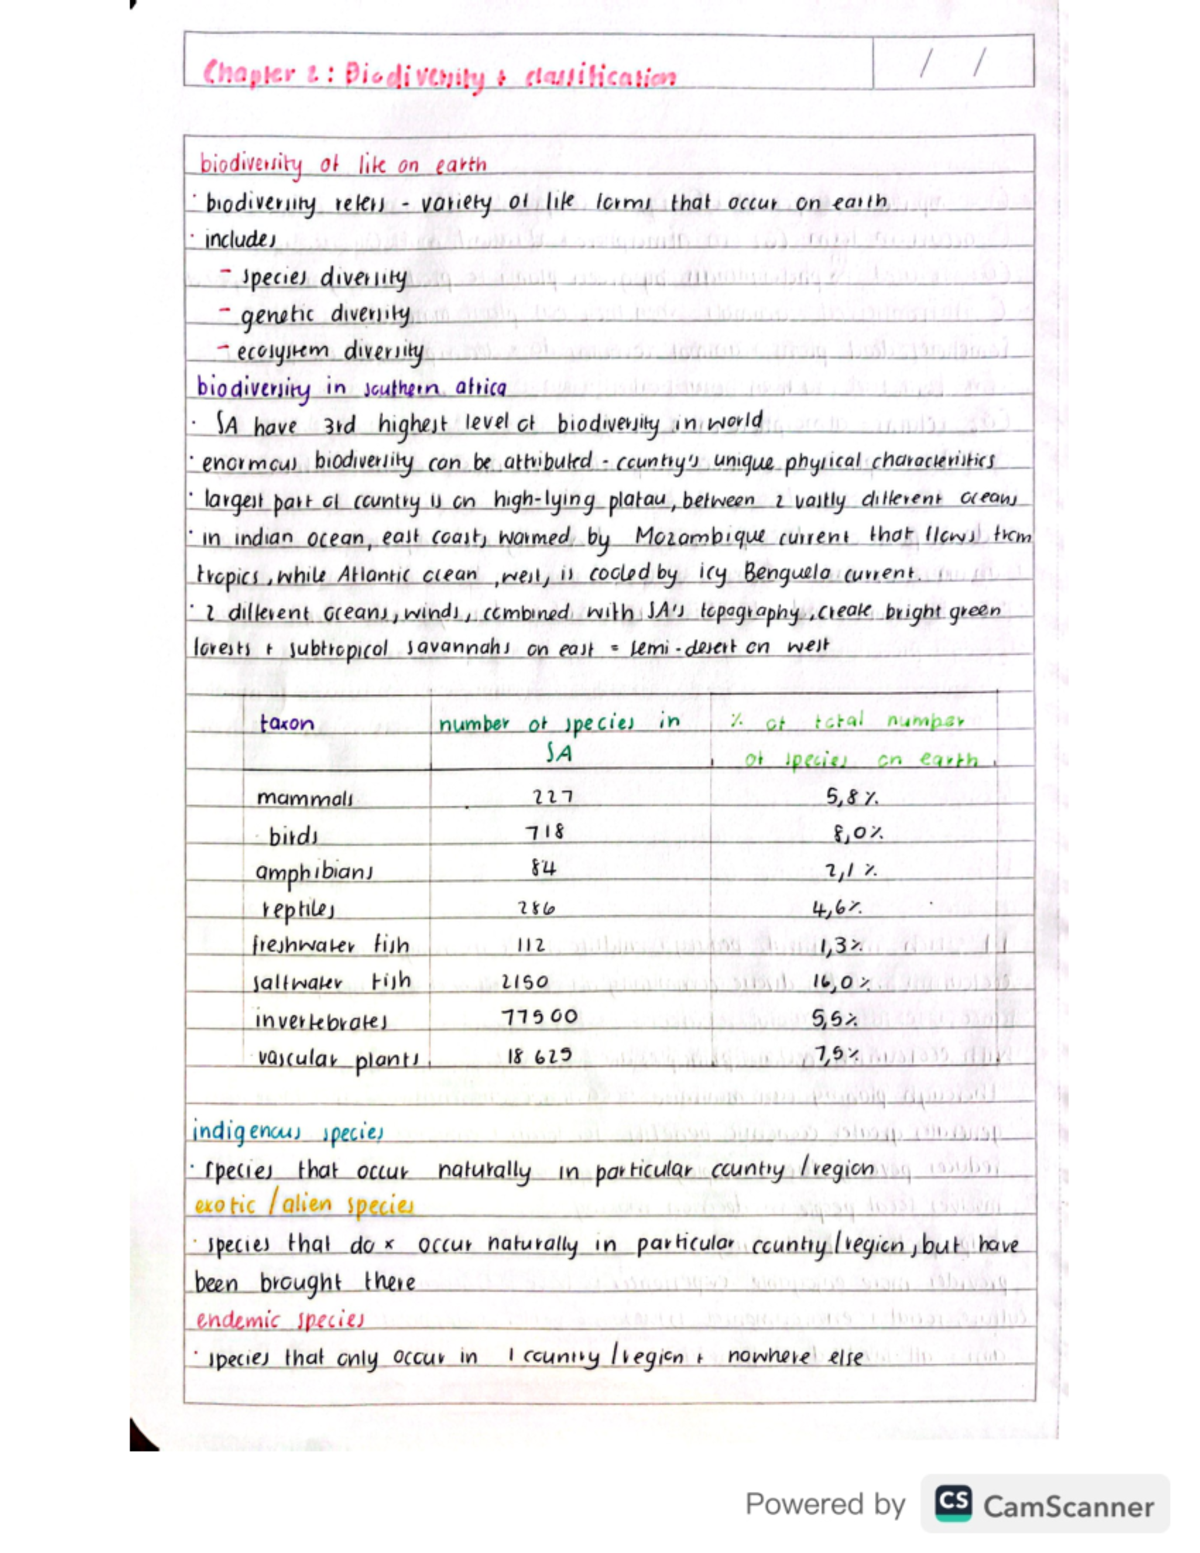 Chapter 2 : Biodiversity + classification
/ /
biodiversity of life on earth
· biodiversity refers - variety of life forms that occur on earth
· includes
- species diversity
- genetic diversity
- ecosystem diversity
biodiversity in southern africa
· SA have 3rd highest level of biodiversity in world
· enormous biodiversity can be attributed - country's unique physical characteristics
· largest part of country is on high-lying platau, between 2 vastly different oceans
· in indian ocean, east coast, warmed by Mozambique current that flows from
tropics, while Atlantic ocean, west, is cooled by icy Benguela current.
· 2 different oceans, winds, combined with SA's topography, create bright green
forests + subtropical savannahs on east = semi-desert on west
taxon number of species in SA % of total number of species on earth
mammals 227 5,8%
birds 718 8,0%
amphibians 84 2,1%
reptiles 286 4,6%
freshwater fish 112 1,3%
saltwater fish 2150 16,0%
invertebrates 77500 5,5%
vascular plants 18 625 7,5%
indigenous species
· species that occur naturally in particular country / region
exotic / alien species
· species that do x occur naturally in particular country / region, but have
been brought there
endemic species
· species that only occur in 1 country / region + nowhere else
Powered by CS CamScanner